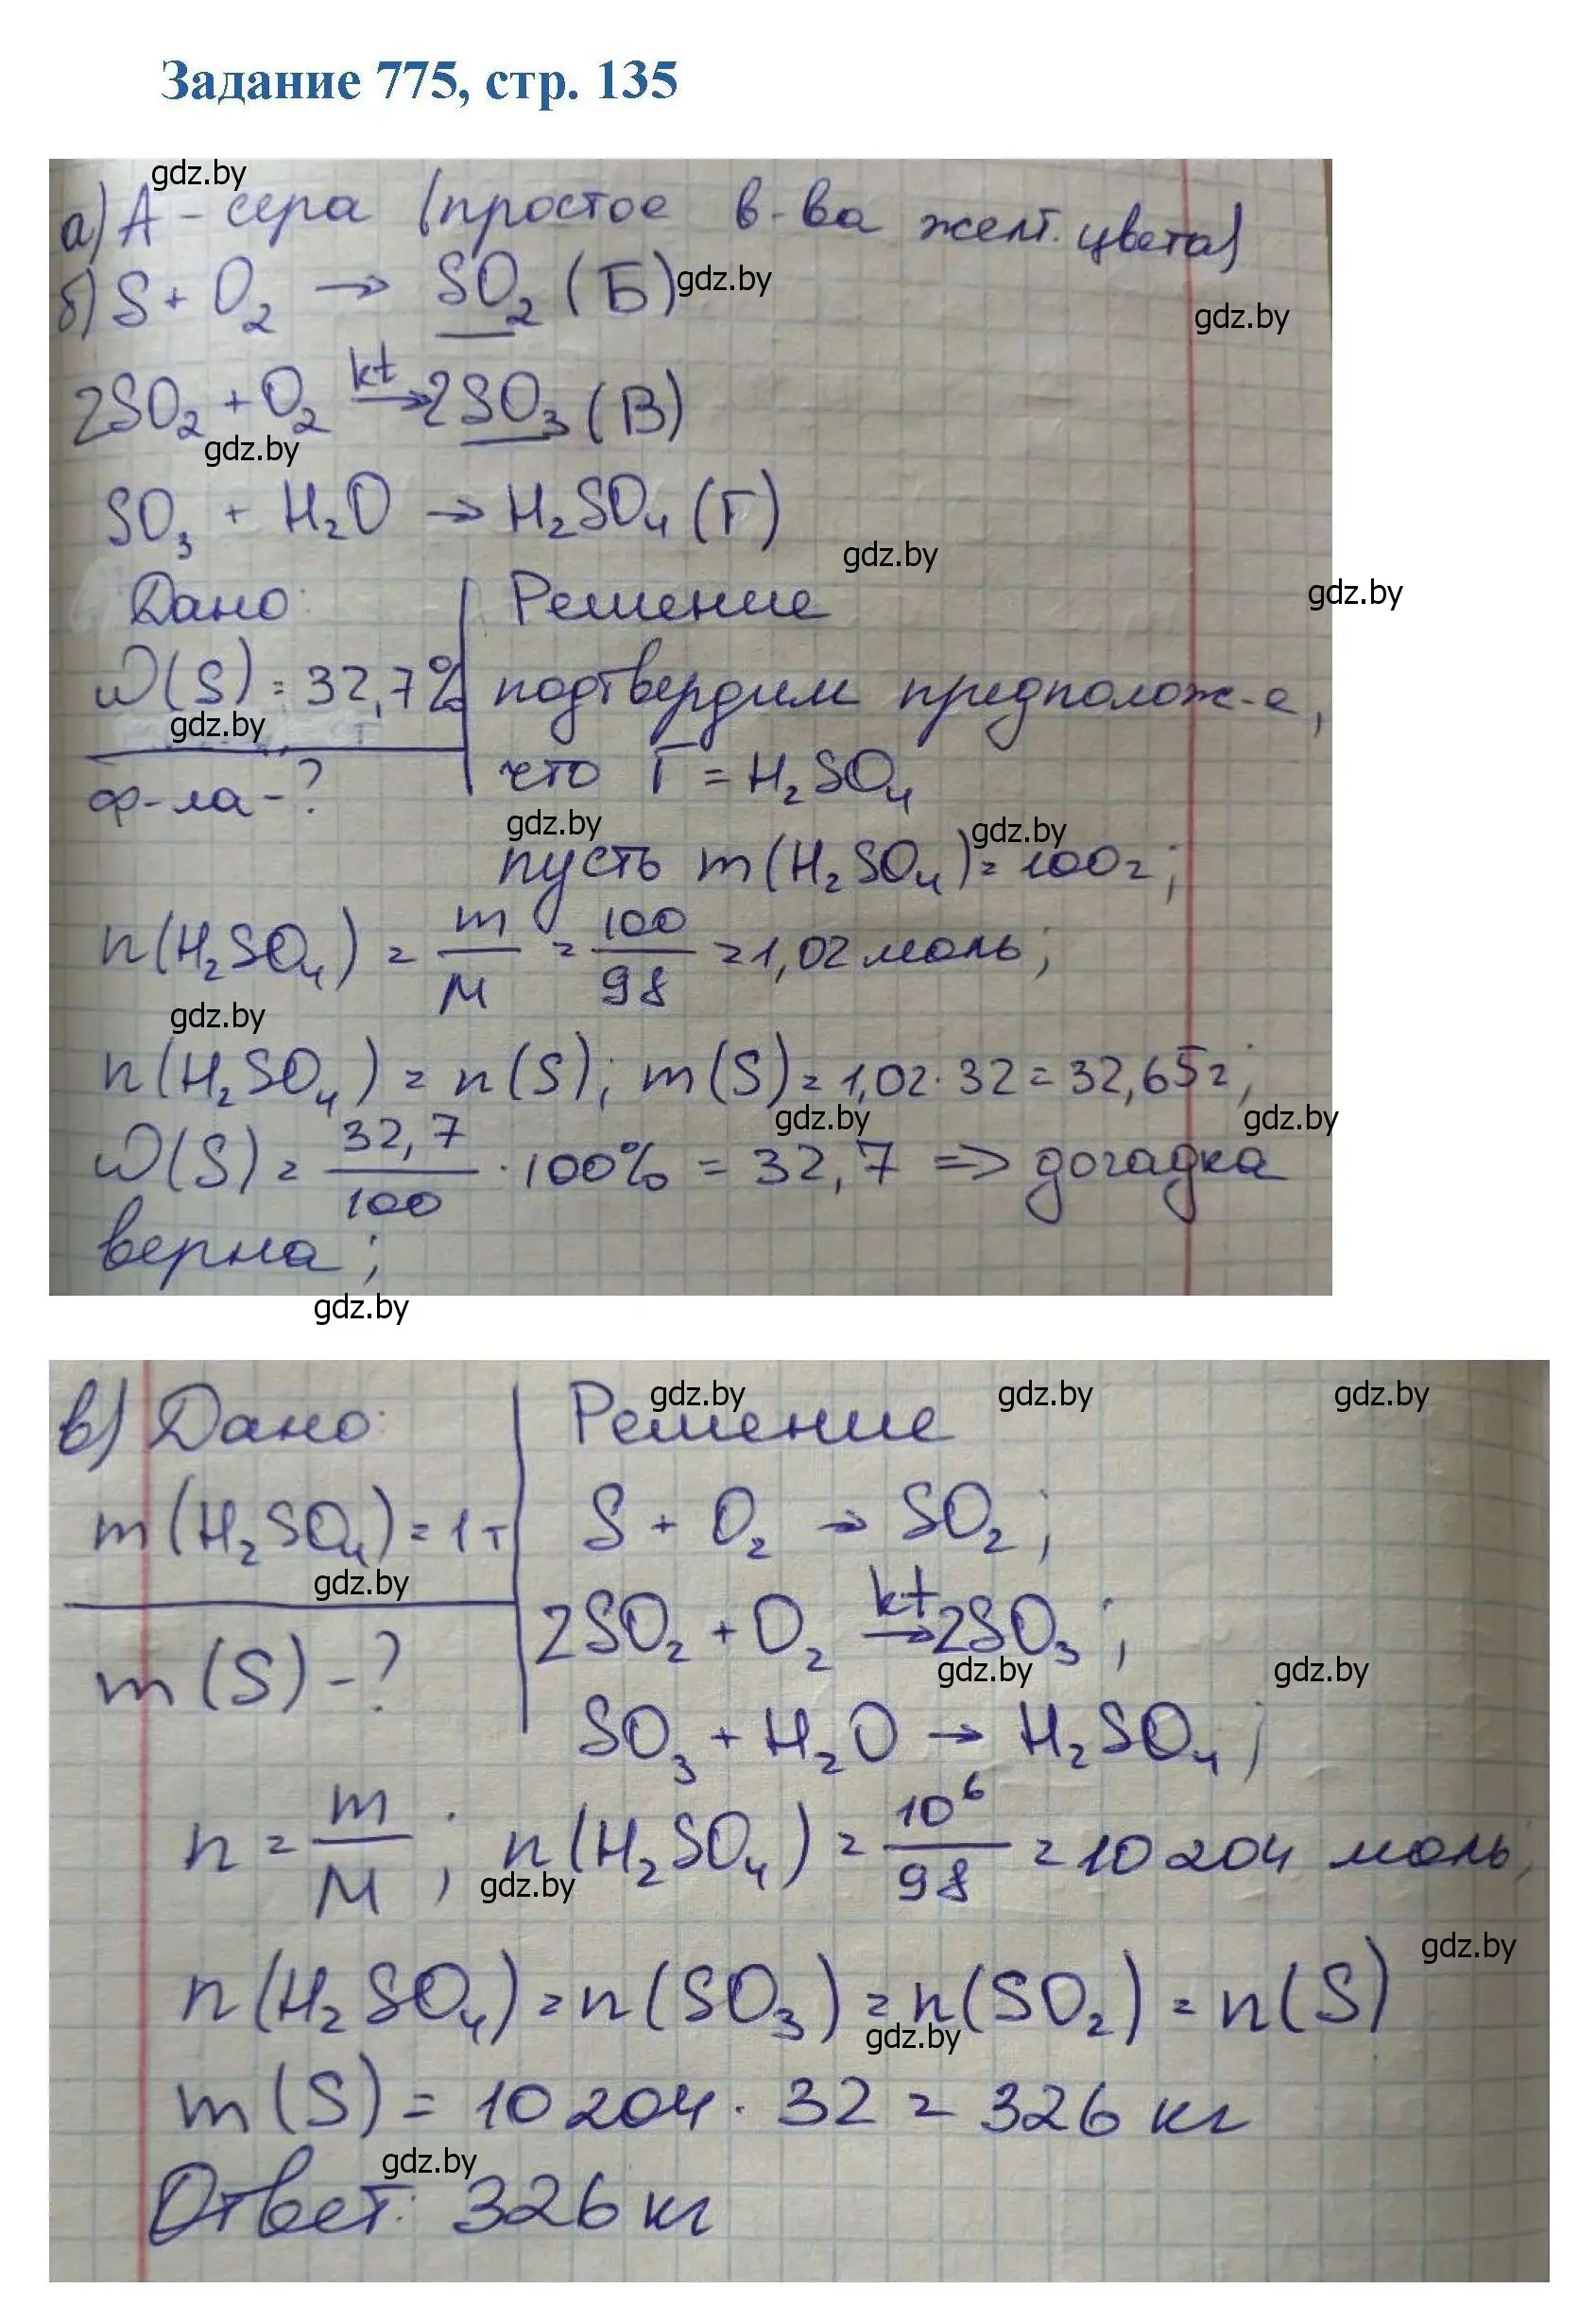 Задание 775, стр. 135
gdz.by
а) А - сера (простое в-ва желт. цвета)
б) S + O₂ → SO₂ (Б) gdz.by
gdz.by
2SO₂ + O₂ kt→ 2SO₃ (В)
gdz.by
SO₃ + H₂O → H₂SO₄ (Г)
gdz.by
gdz.by
Дано: Решение
ω(S) = 32,7% подтвердим предполож-е,
gdz.by
ф-ла - ? что Г = H₂SO₄
gdz.by gdz.by
пусть m(H₂SO₄) = 100г;
n(H₂SO₄) = m/M = 100/98 = 1,02 моль;
gdz.by
n(H₂SO₄) = n(S); m(S) = 1,02·32 = 32,65г;
gdz.by gdz.by
ω(S) = 32,7/100 · 100% = 32,7 => догадка
верна;
gdz.by
gdz.by gdz.by gdz.by
в) Дано: Решение
m(H₂SO₄) = 1т S + O₂ → SO₂;
gdz.by
2SO₂ + O₂ kt→ 2SO₃;
gdz.by gdz.by
m(S) - ? SO₃ + H₂O → H₂SO₄;
n = m/M; n(H₂SO₄) = 10⁶/98 = 10 204 моль;
gdz.by
gdz.by
n(H₂SO₄) = n(SO₃) = n(SO₂) = n(S)
gdz.by
m(S) = 10 204 · 32 = 326 кг
gdz.by
Ответ: 326 кг